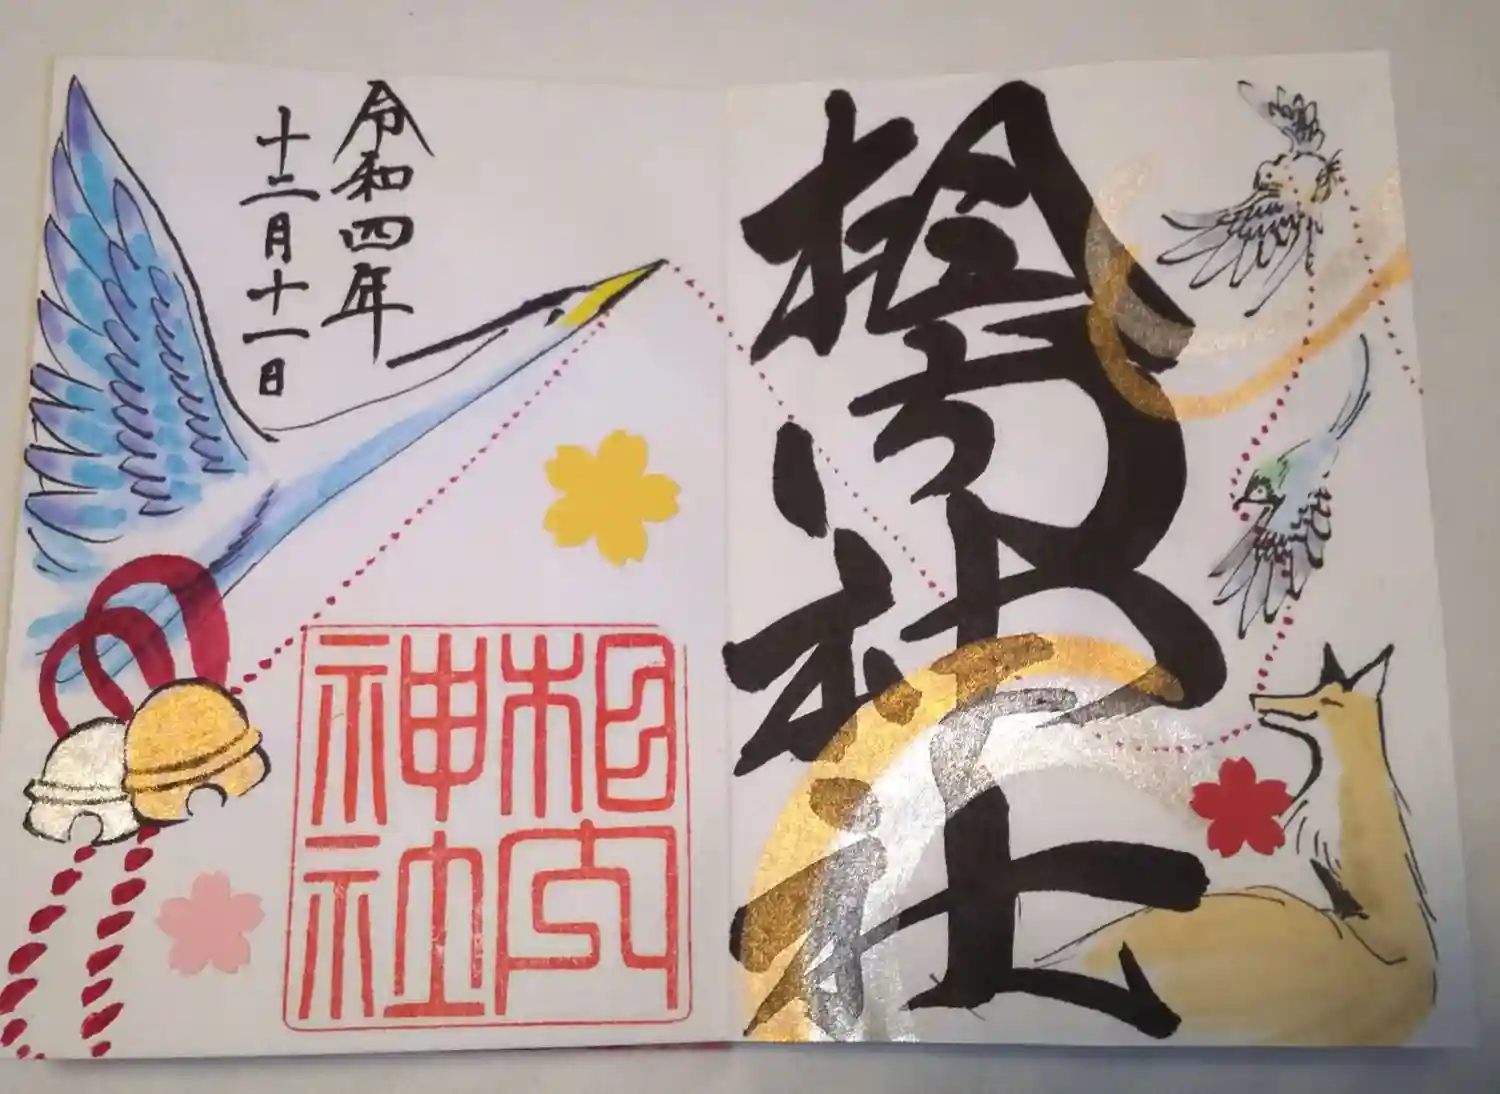 神社
令和四年
十二月十一日
相内
神社